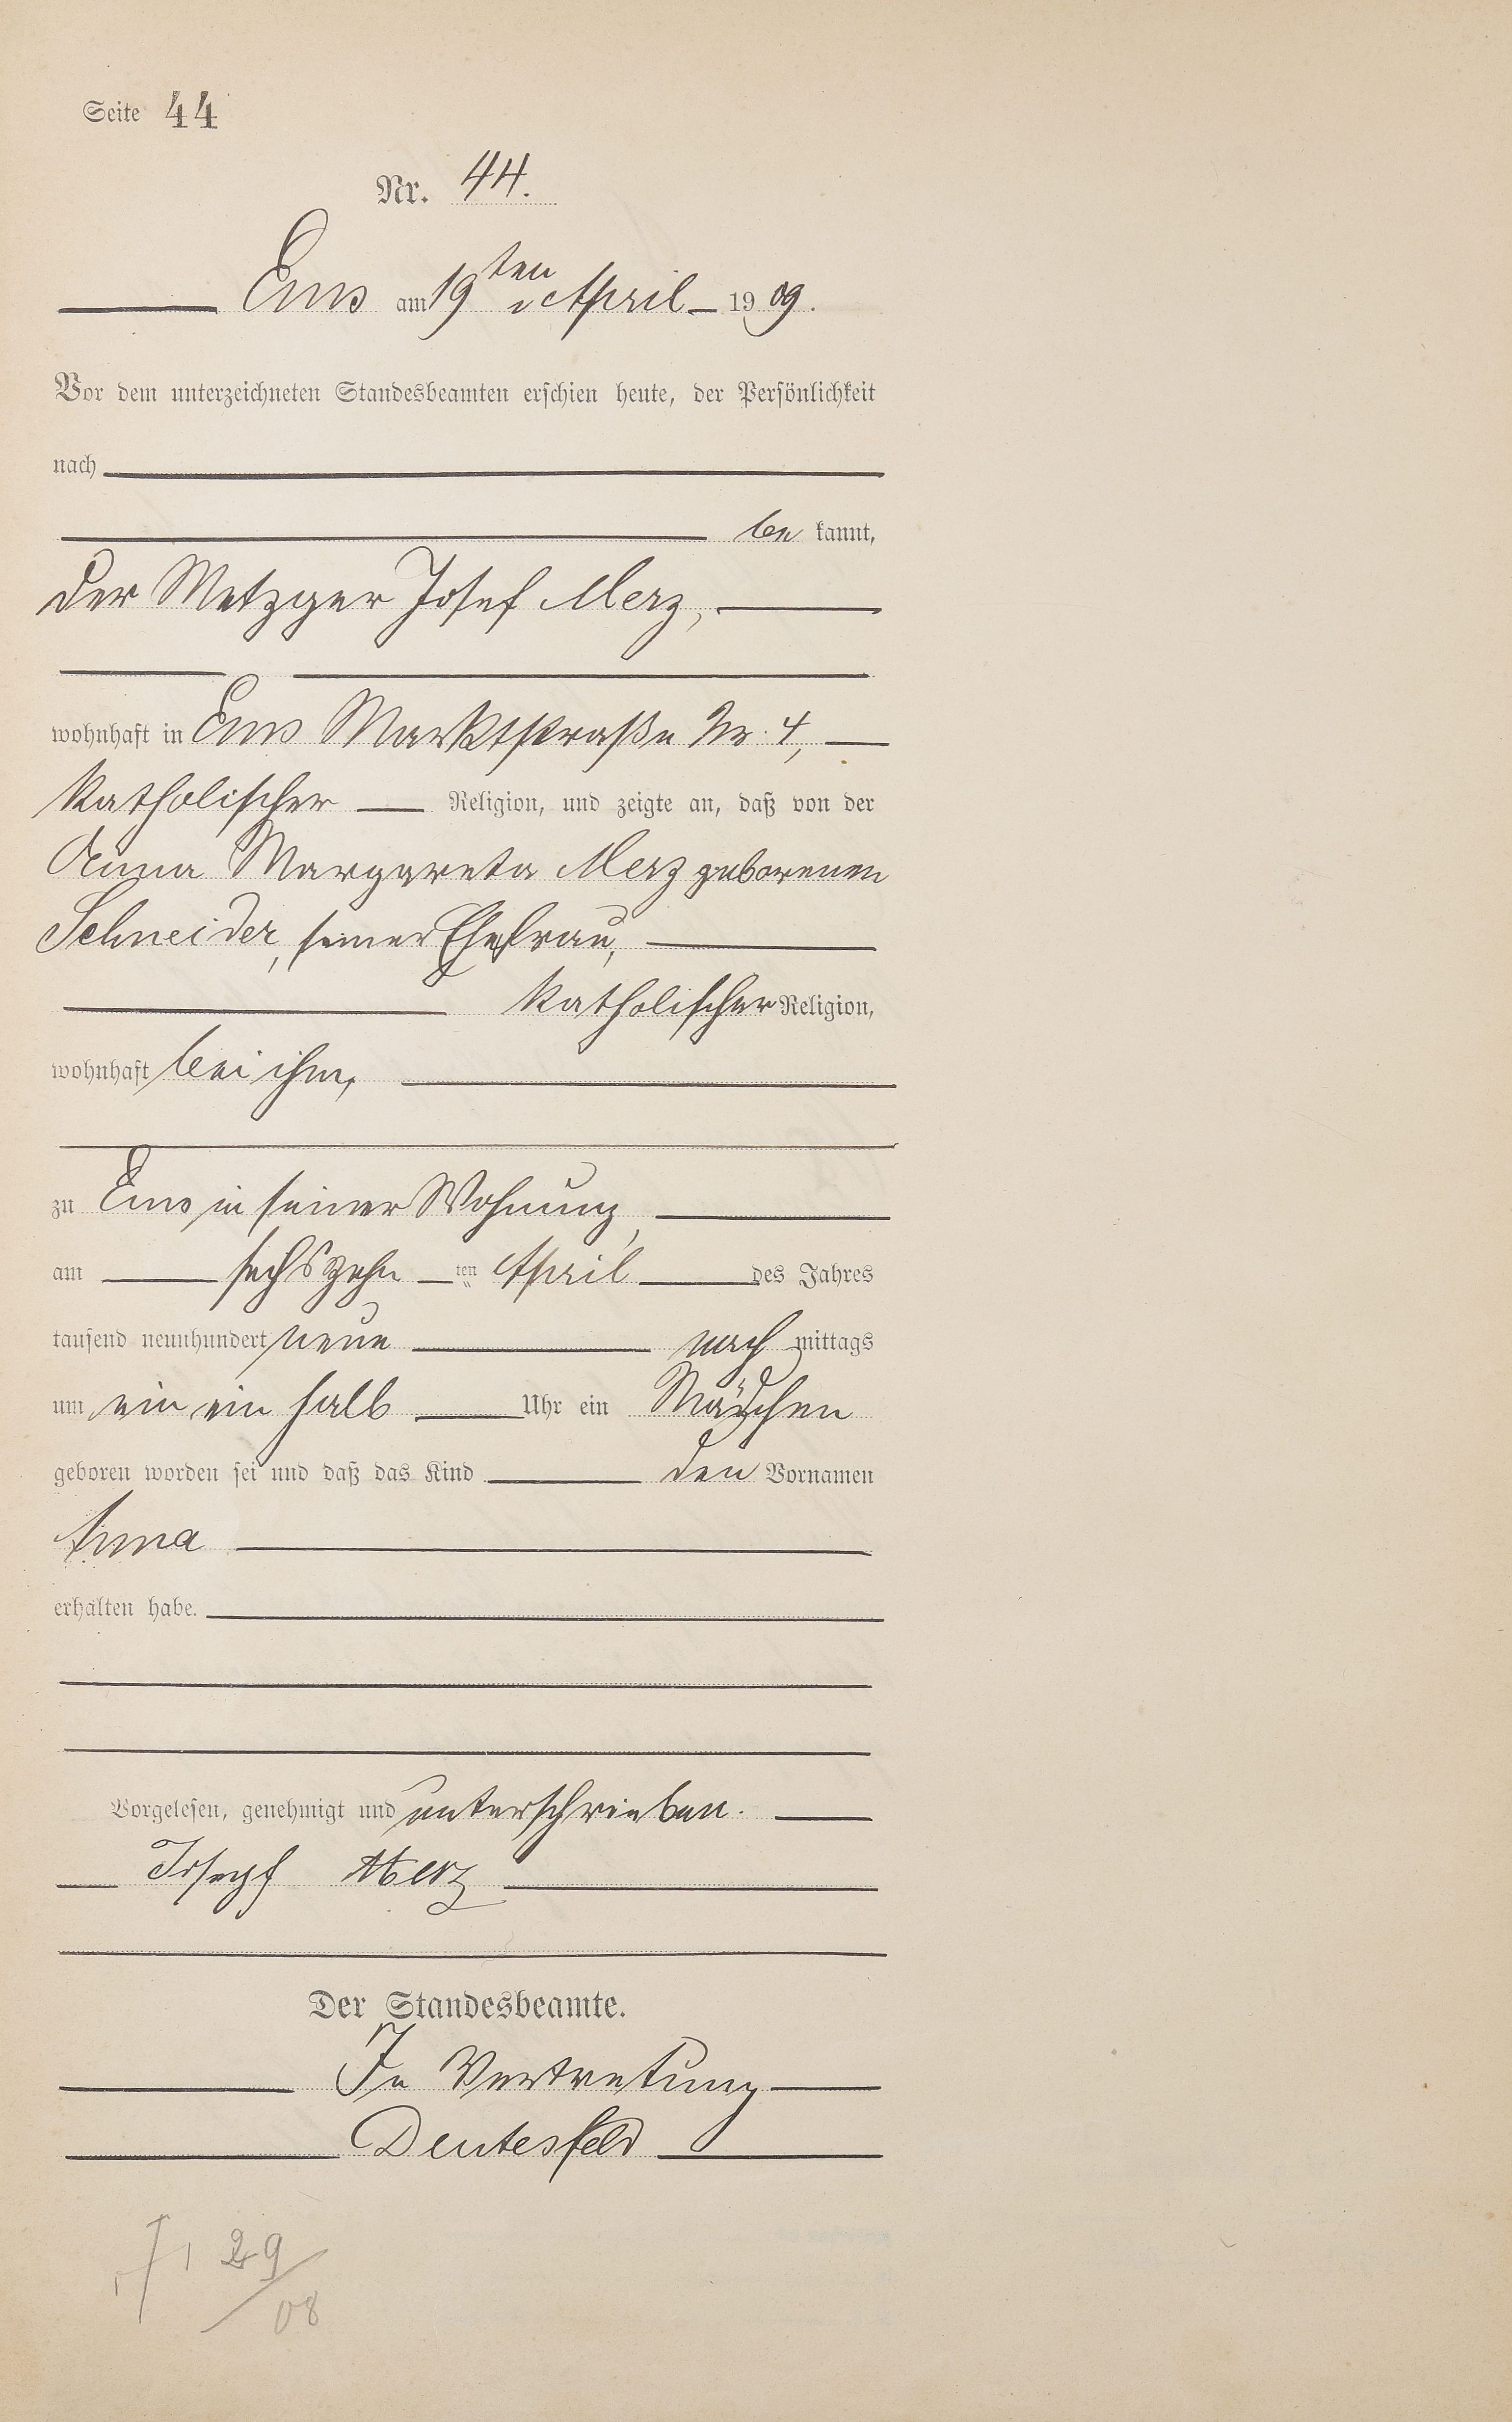 Seite 44
Nr. 44.
Ems am 19ten April 1909.
Vor dem unterzeichneten Standesbeamten erschien heute, der Persönlichkeit
nach
be kannt,
der Metzger Josef Merz,
wohnhaft in Ems Marktstraße Nr. 4,
katholischer Religion, und zeigte an, daß von der
Anna Margareta Merz geborenen
Schneider, seiner Ehefrau,
katholischer Religion,
wohnhaft bei ihm,
zu Ems in seiner Wohnung,
am sechszehn ten April des Jahres
tausend neunhundert neun nach mittags
um ein ein halb Uhr ein Mädchen
geboren worden sei und daß das Kind den Vornamen
Anna
erhalten habe.
Vorgelesen, genehmigt und unterschrieben.
Joseph Merz
Der Standesbeamte.
In Vertretung
Deutesfeld
29
08